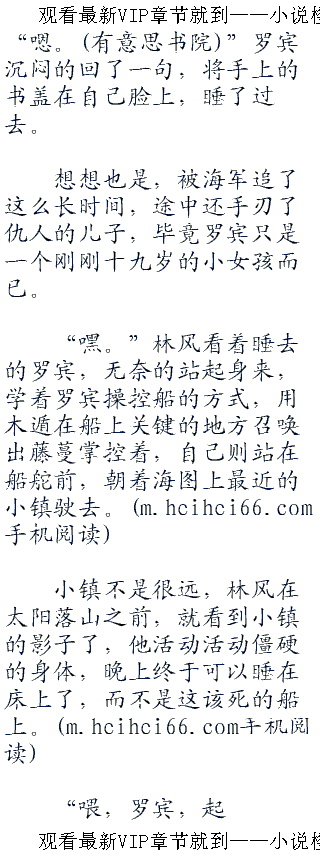 观看最新VIP章节就到——小说
“嗯。(有意思书院)”罗宾
沉闷的回了一句，将手上的
书盖在自己脸上，睡了过
去。
想想也是，被海军追了
这么长时间，途中还手刃了
仇人的儿子，毕竟罗宾只是
一个刚刚十九岁的小女孩而
已。
“嘿。”林风看着睡去
的罗宾，无奈的站起身来，
学着罗宾操控船的方式，用
木遁在船上关键的地方召唤
出藤蔓掌控着，自己则站在
船舵前，朝着海图上最近的
小镇驶去。(m.hcihci66.com
手机阅读)
小镇不是很远，林风在
太阳落山之前，就看到小镇
的影子了，他活动活动僵硬
的身体，晚上终于可以睡在
床上了，而不是这该死的船
上。(m.hcihci66.com手机阅
读)
“喂，罗宾，起
观看最新VIP章节就到——小说